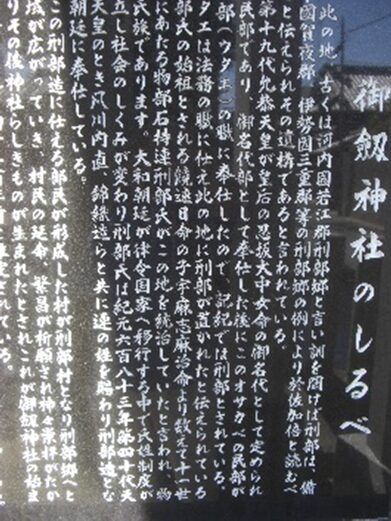 御劔神社のしるべ
此の地、古くは河内國若江郡刑部郷と言い訓を開けば刑部は、備
國賀夜郡 伊勢國三重郡等の刑部郷の例により於佐加倍と読むべ
と伝えられその遺構であると言われている。
第十九代允恭天皇が皇后の忍坂大中女命の御名代として定められ
民部であり、御名代部として奉仕した後にこのオサカベの民部が
部(ウタエ)の職に奉仕したので、記紀では刑部とされている。
タエは法務の職に仕え此の地に刑部が置かれたと伝えられている
部氏の始祖とされる饒速日命の子宇麻志麻治命より数えて十一世
にあたる物部石持連刑部氏がこの地を統治していたと言われ、物
氏族であります。大和朝廷が律令国家へ移行する中で氏姓制度が
立し社会のしくみが変わり刑部氏は紀元六百八十三年第四十代天
天皇のとき凡川内直、錦織造らと共に連の姓を賜わり刑部造とな
朝廷に奉仕している。
この刑部造に仕える部民が形成した村が刑部村となり刑部郷へと
域が広がっていき、村民の延命、繁昌が祈願され神々崇拝がたか
りその後神社らしきものが生まれたとされこれが御劔神社の始ま